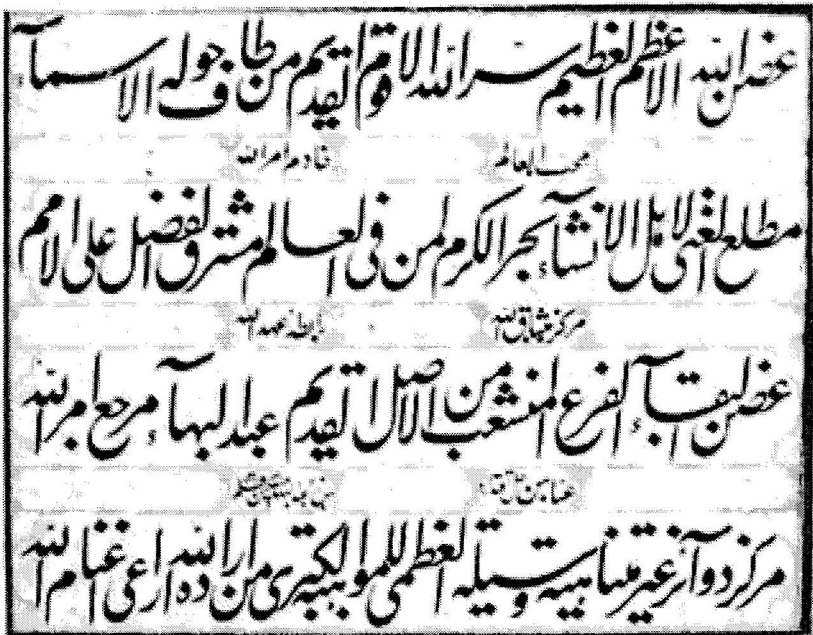 غصن الله الاعظم العظیم سر الله الاقوم القدیم من طاف حوله الاسمآء
محب العالم خادم امر الله
مطلع الغنی لاهل الانشآء بحر الکرم لمن فی العالم مشرق الفضل علی الامم
مرکز میثاق الله رابطه عهد الله
غصن البقآء الفرع المنشعب من الاصل القدیم عبد البهآء مرجع امر الله
مرکز دوآئر غیر متناهیه وسیله العظمی للموهبة الکبری من اراده الله راعی اغنام الله